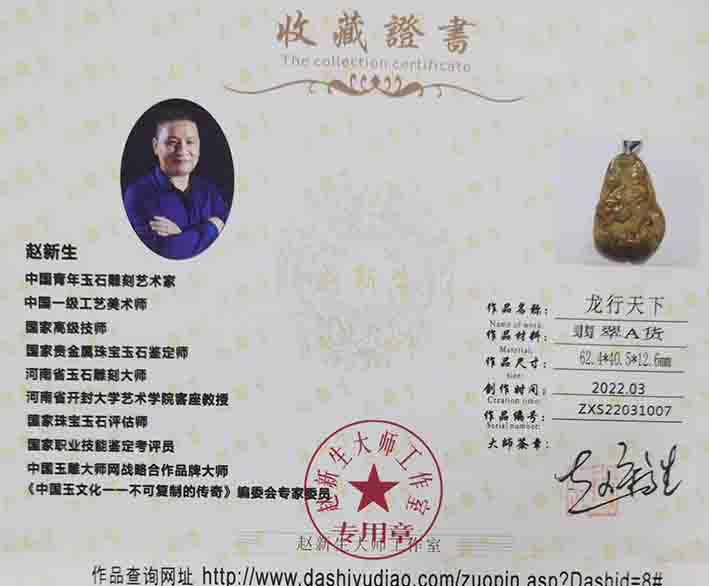 收藏證書
The collection certificate
赵新生
中国青年玉石雕刻艺术家
中国一级工艺美术师
国家高级技师
国家贵金属珠宝玉石鉴定师
河南省玉石雕刻大师
河南省开封大学艺术学院客座教授
国家珠宝玉石评估师
国家职业技能鉴定考评员
中国玉雕大师网战略合作品牌大师
《中国玉文化——不可复制的传奇》编委会专家委员
作品名称: 龙行天下
Name of work:
作品材料: 翡翠A货
Material:
作品尺寸: 62.4*40.5*12.6mm
size:
创作时间: 2022.03
Creation time:
作品编号: ZXS22031007
Serial number:
大师签章:
赵新生
赵新生大师工作室
专用章
赵新生大师工作室
作品查询网址 http://www.dashiyudiao.com/zuopin.asp?Dashid=8#